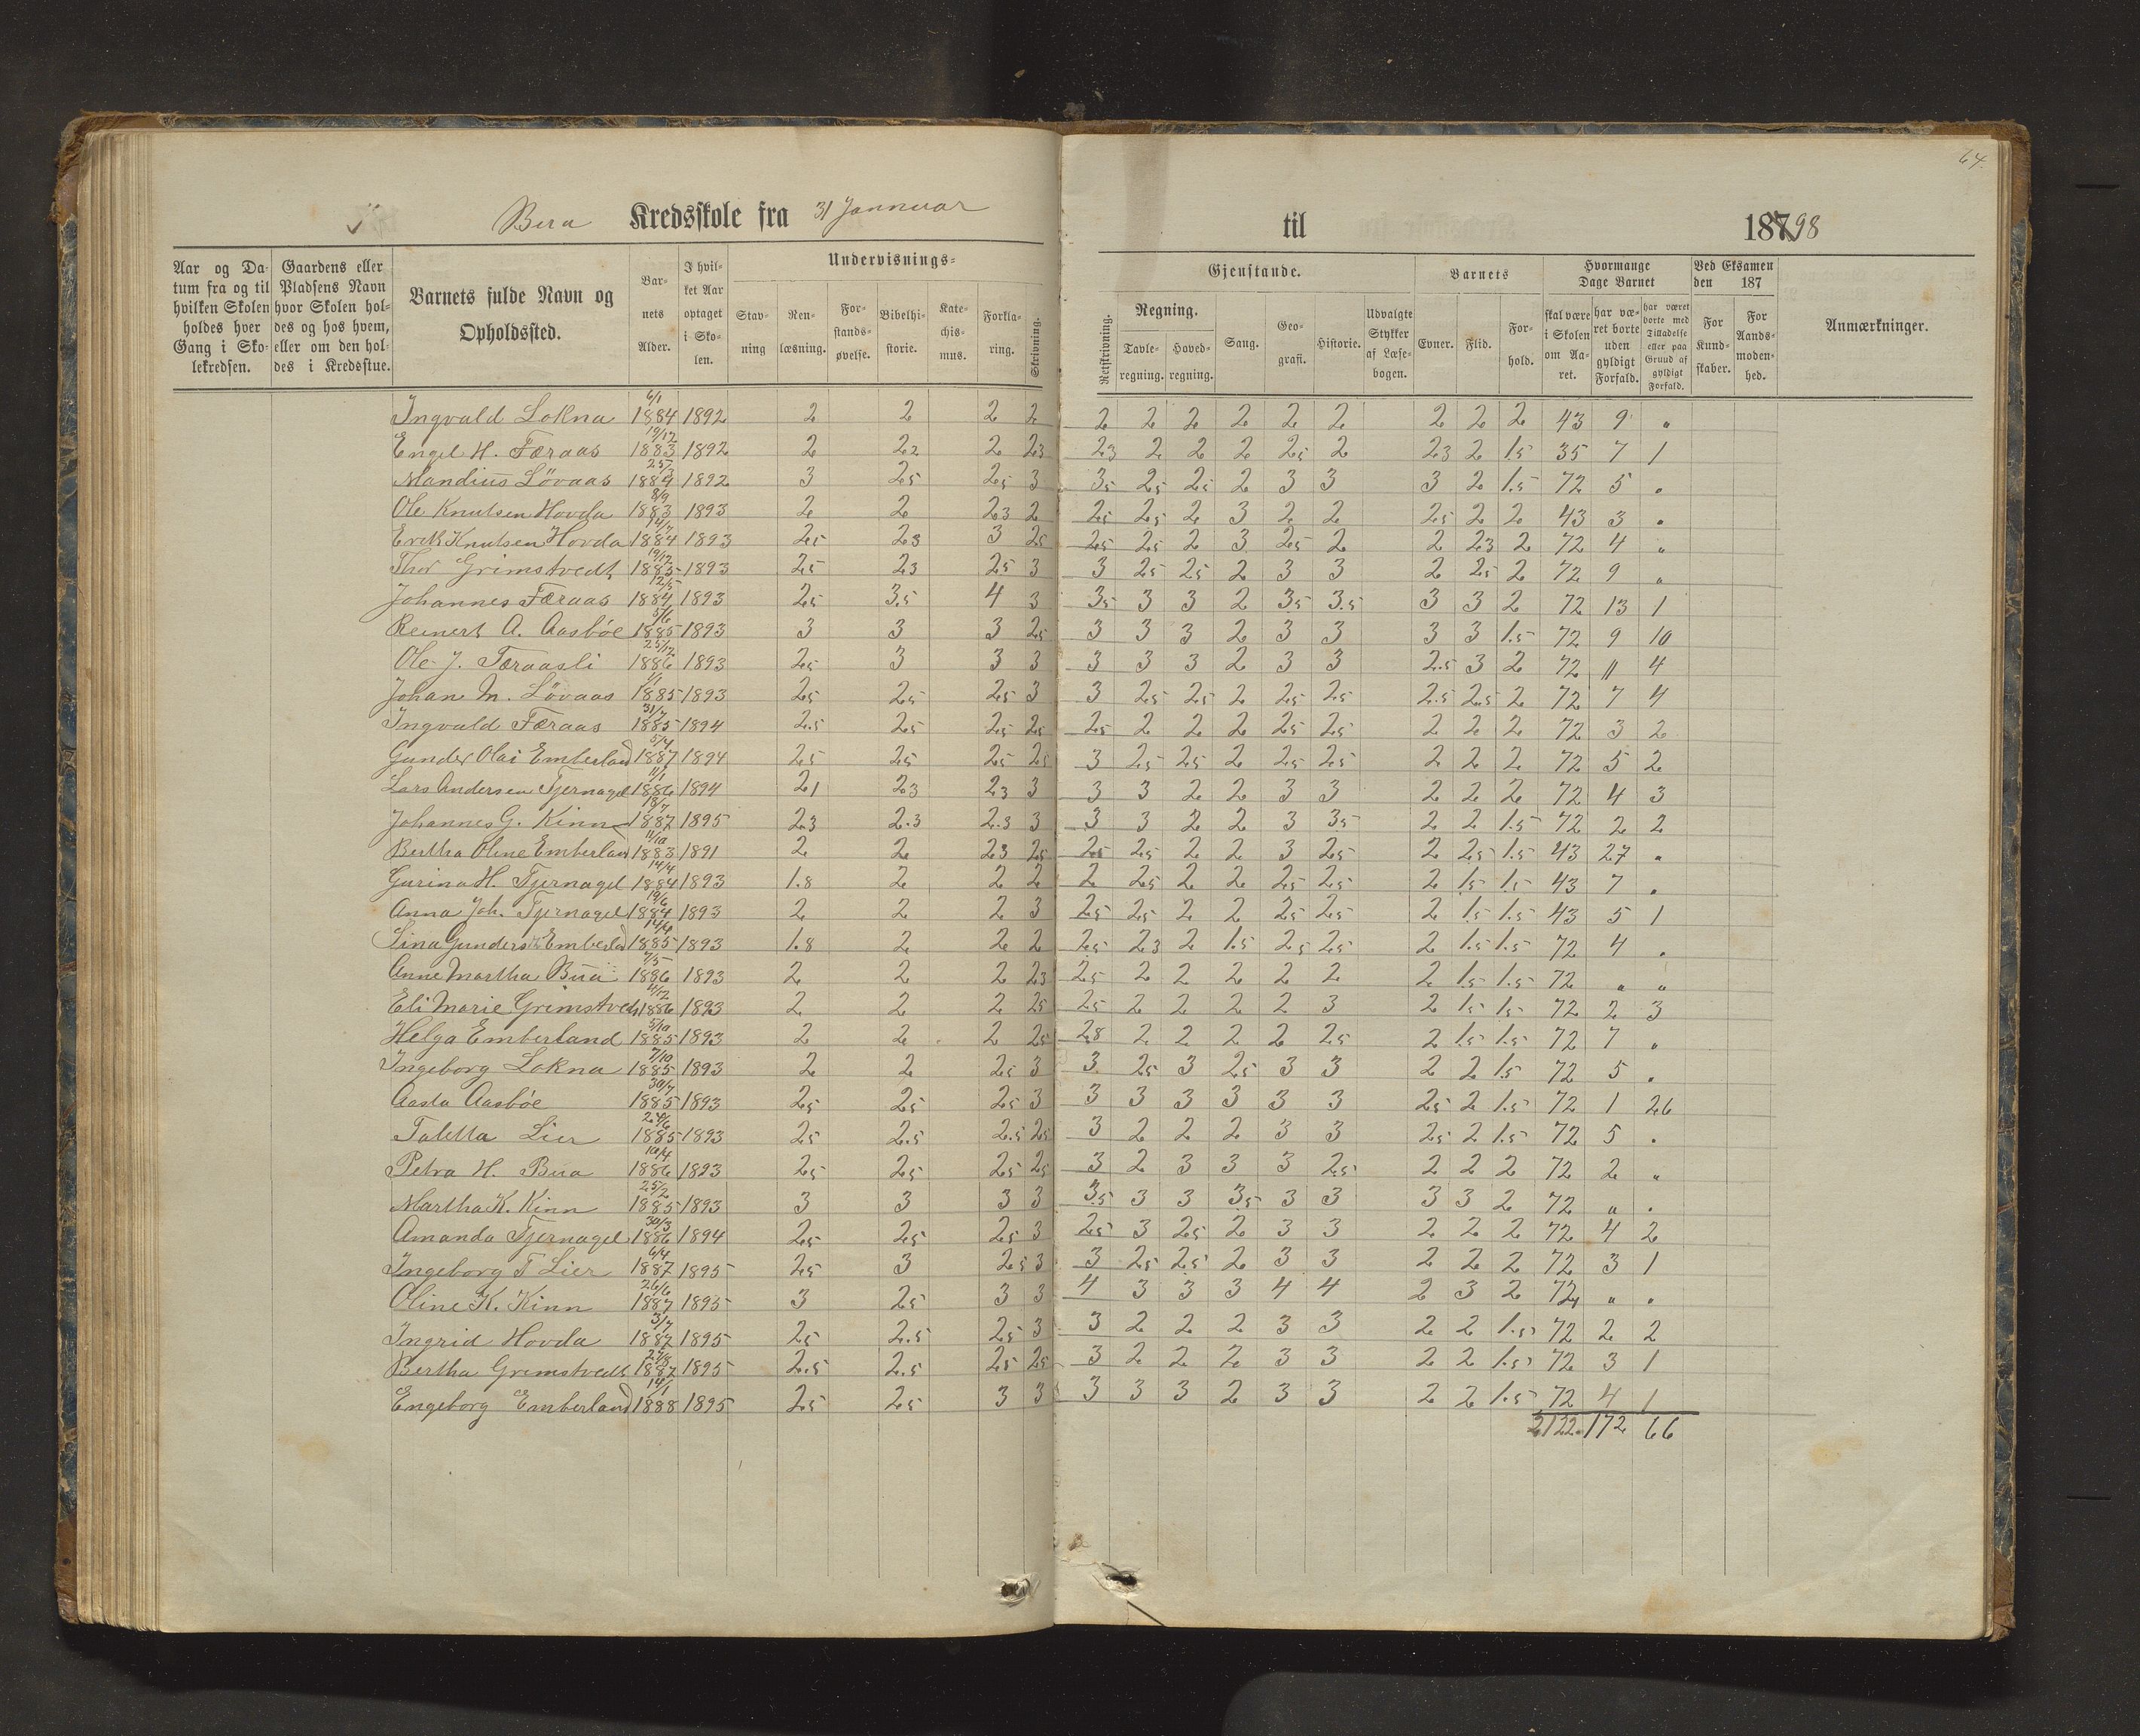 64.
Bua Kredsskole fra 31 Jannuar til 187 98
Aar og Datum fra og til hvilken Skolen holdes hver Gang i Skolekredsen.
Gaardens eller Pladsens Navn hvor Skolen holdes og hos hvem, eller om den holdes i Kredsstue.
Barnets fulde Navn og Opholdssted.
Barnets Alder.
I hvilket Aar optaget i Skolen.
Undervisnings-Gjenstande.
Stavning Renlæsning. Forstandsøvelse. Bibelhistorie. Katechismus. Forklaring. Skrivning.
Retskrivning. Regning. Tavleregning. Hovedregning. Sang. Geografi. Historie. Udvalgte Stykker af Læsebogen.
Barnets Evner. Flid. Forhold.
Hvormange Dage Barnet
skal være i Skolen om Aaret. har været borte uden gyldigt Forfald. har været borte med Tilladelse eller paa Grund af gyldigt Forfald.
Ved Eksamen den 187
For Kundskaber. For Aandsmodenhed.
Anmærkninger.
Ingvald Lokna 6/1 1884 1892 2 2 2 2 2 2 2 2 2 2 2 2 2 43 9 "
Engel H. Færaas 19/12 1883 1892 2 2.2 2 2.3 2.3 2 2 2 2.5 2 2.3 2 1.5 35 7 1
Mandius Lövaas 25/3 1884 1892 3 2.5 2.5 3 3.5 2.5 2.5 2 3 3 3 2 1.5 72 5 "
Ole Knutsen Hovda 8/9 1883 1893 2 2 2.3 2 2.5 2.5 2 3 2 2 2.5 2 2 43 3 "
Erik Knutsen Hovda 14/7 1884 1893 2.5 2.3 3 2.5 2.5 2.5 2 3 2.5 2 2 2.3 2 72 4 "
Thor Grimstvedt 19/12 1885 1893 2.5 2.3 2.5 3 3 2.5 2.5 2 3 3 2 2.5 2 72 9 "
Johannes Færaas 12/5 1884 1893 2.5 3.5 4 3 3.5 3 3 2 3.5 3.5 3 3 2 72 13 1
Reinert A. Aasböe 5/6 1885 1893 3 3 3 2.5 3 3 3 2 3 3 3 3 1.5 72 9 10
Ole J. Færaasli 25/12 1886 1893 2.5 3 3 3 3 3 3 2 3 3 2.5 3 2 72 11 4
Johan M. Lövaas 1/1 1885 1893 2.5 2.5 2.5 3 3 2.5 2.5 2 2.5 2.5 2.5 2.5 2 72 7 4
Ingvald Færaas 31/7 1885 1894 2.5 2.5 2.5 2.5 2.5 2 2 2 2.5 2.5 2 2 2 72 3 2
Gunder Olai Emberland 5/4 1887 1894 2.5 2.5 2.5 2.5 3 2.5 2.5 2 2.5 2.5 2 2 2 72 5 2
Lars Andersen Tjernagel 11/1 1886 1894 2.1 2.3 2.3 3 3 3 2 2 3 3 2 2 2 72 4 3
Johannes G. Kinn 18/7 1887 1895 2.3 2.3 2.3 3 3 3 2 2 3 3.5 2 2 1.5 72 2 2
Bertha Oline Emberland 11/10 1883 1891 2 2 2.3 2.5 2.5 2.5 2 2 3 2.5 2 2.5 1.5 43 27 "
Gurina H. Tjernagel 14/4 1884 1893 1.8 2 2 2 2 2.5 2 2 2.5 2.5 2 1.5 1.5 43 7 "
Anna Joh. Tjernagel 19/6 1884 1893 2 2 2 3 2.5 2.5 2 2 2.5 2.5 2 1.5 1.5 43 5 1
Lina Gunders Emberland 1885 1893 1.8 2 2 2 2.5 2.3 2 1.5 2.5 2.5 2 1.5 1.5 72 4 "
Anne Martha Bua 7/5 1886 1893 2 2 2 2.3 2.5 2 2 2 2 2 2 1.5 1.5 72 " "
Eli Marie Grimstvedt 4/12 1886 1893 2 2 2 2.5 2.5 2 2 2 2 3 2 1.5 1.5 72 2 3
Helga Emberland 5/10 1885 1893 2 2 2 2.5 2.8 2 2 2 2 2.5 2 1.5 1.5 72 7 "
Ingeborg Lokna 7/10 1885 1893 2 2 2.5 3 3 2.5 3 2.5 3 3 2 2 1.5 72 5 "
Aasta Aasböe 30/7 1885 1893 2.5 2.5 2.5 3 3 3 3 3 3 3 2.5 2 1.5 72 1 26
Taletta Lier 24/6 1885 1893 2.5 2.5 2.5 2.5 3 2 2 2 3 3 2.5 2 1.5 72 5 "
Petra H. Bua 10/4 1886 1893 2.5 2.5 2.5 2.5 3 2 3 3 3 2.5 2 2 2 72 2 "
Martha K. Kinn 25/2 1885 1893 3 3 3 3 3.5 3 3 3.5 3 3 3 3 2 72 " "
Amanda Tjernagel 30/3 1886 1894 2.5 2.5 2.5 3 2.5 3 2.5 2 3 3 2 2 2 72 4 2
Ingeborg T Lier 6/4 1887 1895 2.5 3 2.5 3 3 2.5 2.5 2 3 3 2 2 2 72 3 1
Oline K. Kinn 26/6 1887 1895 3 2.5 3 3 4 3 3 3 4 4 2 3 2 72 " "
Ingrid Hovda 3/7 1887 1895 2.5 2.5 2.5 3 3 2 2 2 3 3 2 2 1.5 72 2 2
Bertha Grimstvedt 27/8 1887 1895 2.5 2.5 2.5 2.5 3 2 2 2 3 3 2 2 1.5 72 3 1
Engeborg Emberland 14/1 1888 1895 2.5 2.5 3 3 3 3 3 2 3 3 2 2 1.5 72 4 1
2122 172 66